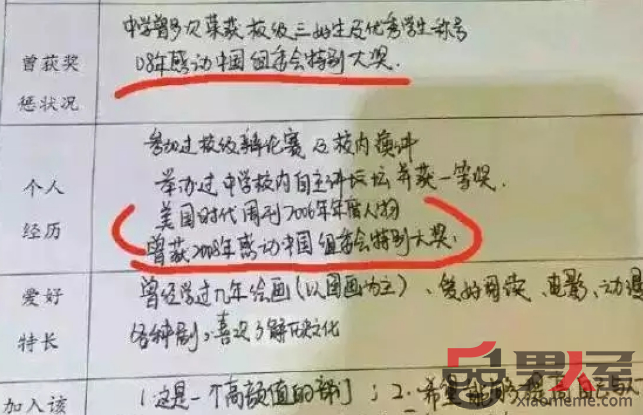 曾获奖
惩状况
中学曾多次荣获校级三好生及优秀学生称号
08年感动中国组委会特别大奖.
个人
经历
参加过校级辩论赛及校内演讲
举办过中学校内自主讲坛并获一等奖.
美国时代周刊2006年年度人物
曾获2008年感动中国组委会特别大奖.
爱好
特长
曾经学过九年绘画(以国画为主)、爱好阅读、电影、动漫
各种剧,喜欢了解花文化
加入该
1.这是一个高颜值的部门;2.希望能
品男人屋
xiaomeme.com